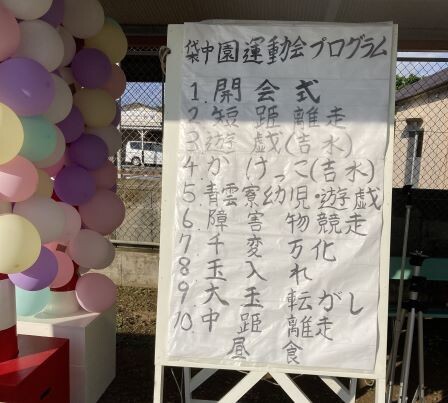 袋中園運動会プログラム
1. 開会式
2. 短距離走
3. 遊戯(吉水)
4. かけっこ(吉水)
5. 青雲寮幼児・遊戯
6. 障害物競走
7. 千変万化
8. 玉入れ
9. 大玉転がし
10. 中距離走
昼食